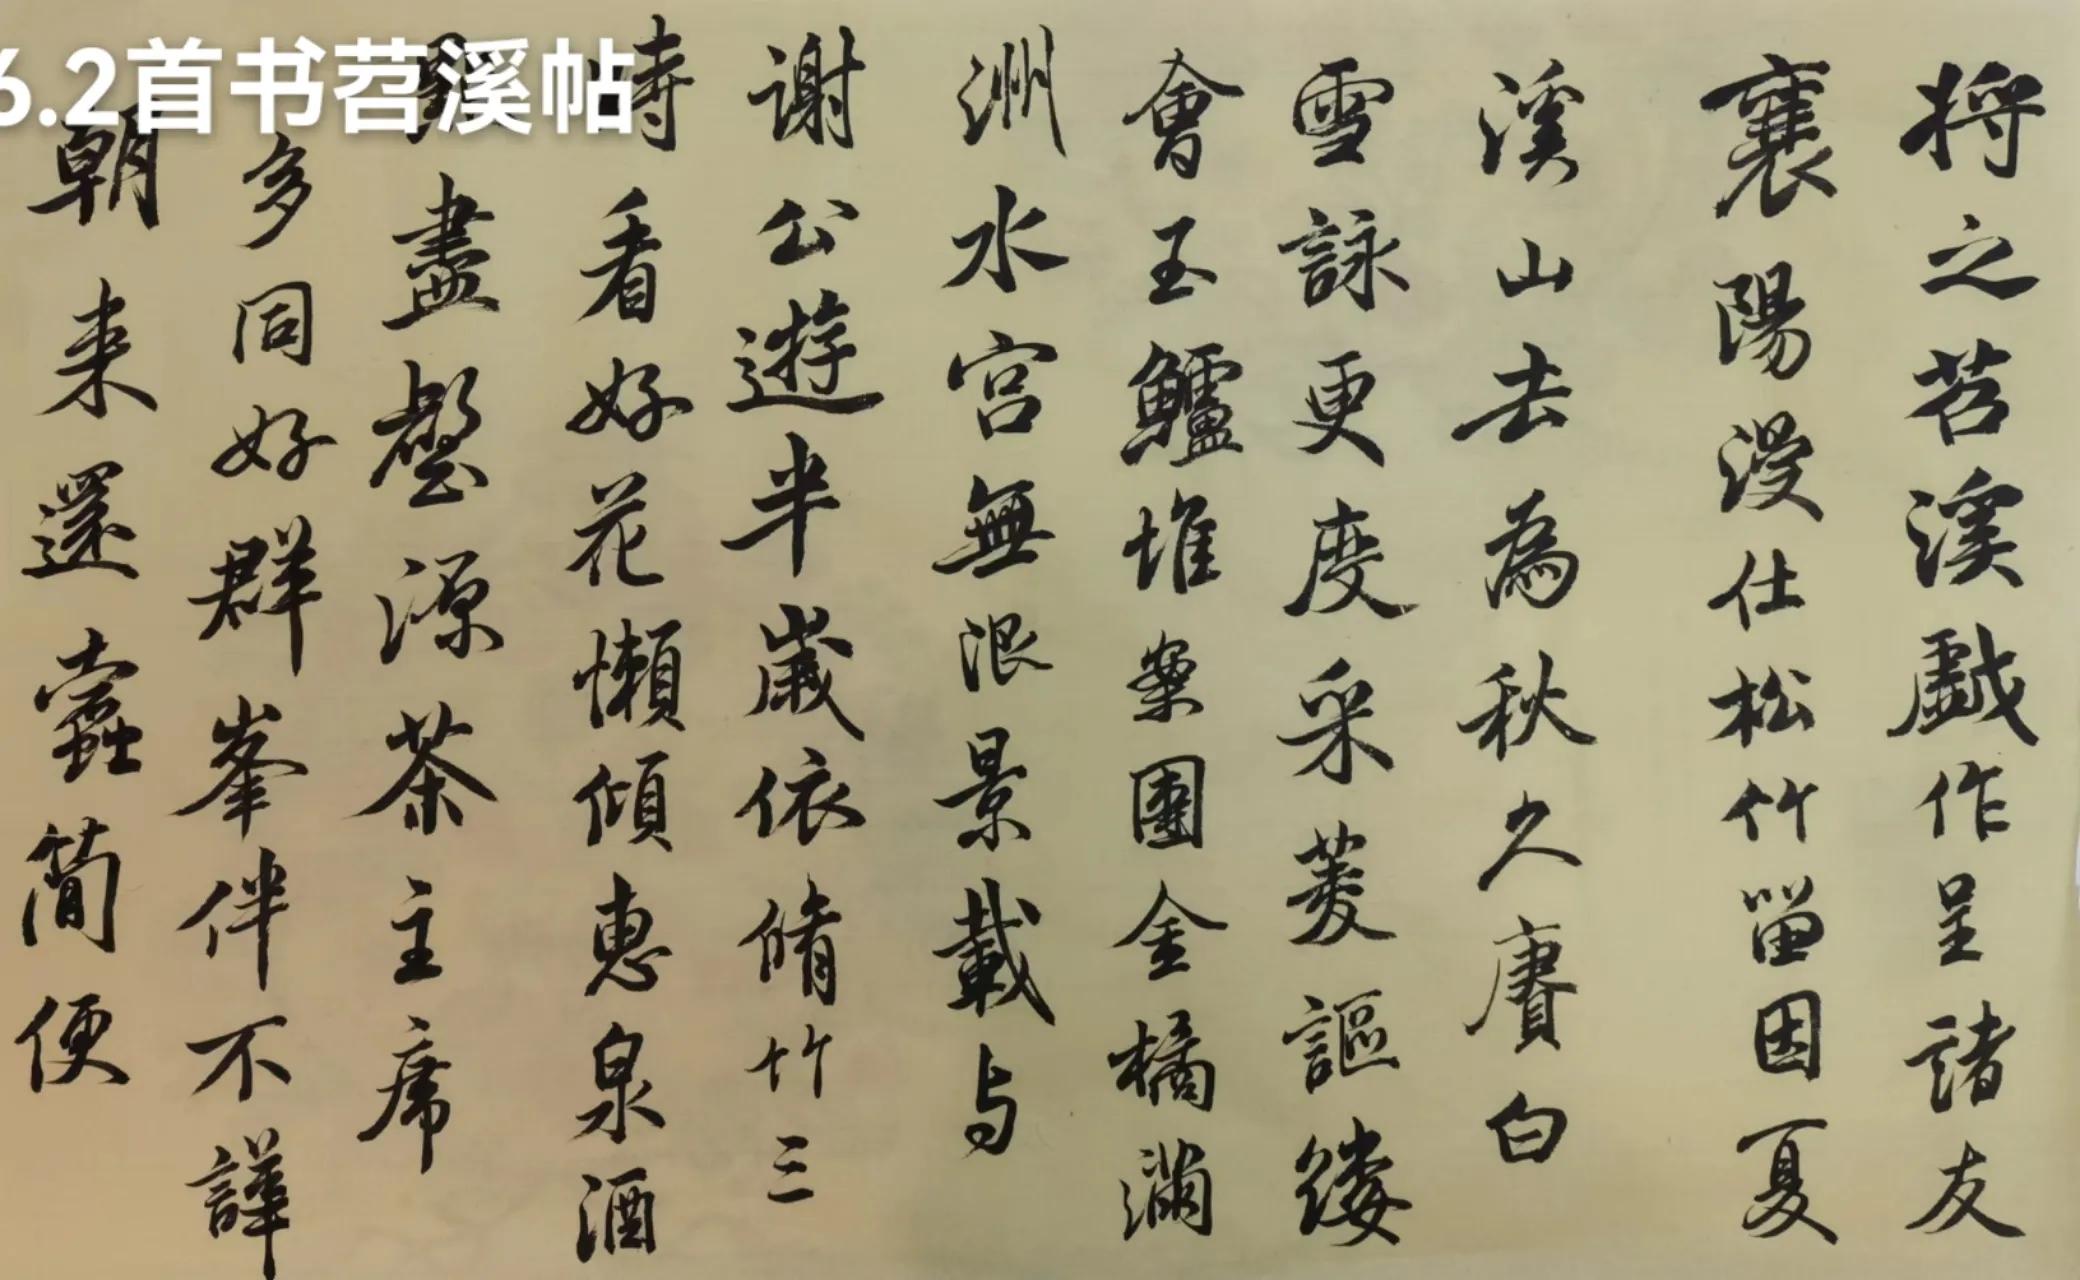 6.2首书苕溪帖
將之苕溪戲作呈諸友
襄陽漫仕松竹留因夏
溪山去為秋久賡白
雪詠更度采菱謳縷
會玉鱸堆案團金橘滿
洲水宮無限景載与
謝公遊半歲依脩竹三
時看好花懶傾惠泉酒
盡壑源茶主席
多同好群峯伴不譁
朝来還蠹簡便